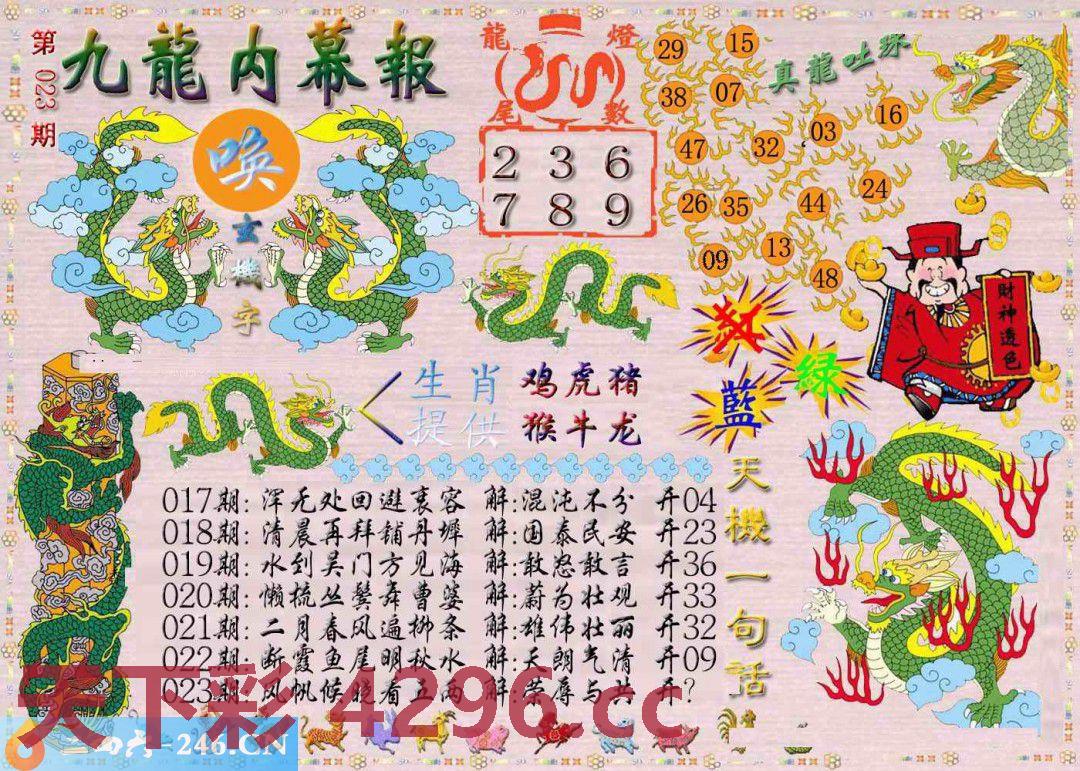 第023期
九龍内幕報
唤
玄機字
龍燈
尾數
2 3 6
7 8 9
真龍吐珠
29 15
38 07
47 32 03 16
26 35 44 24
09 13 48
红
綠
藍
財神透色
生肖
提供
鸡虎猪
猴牛龙
天機一句话
017期: 浑无处回避衰容 解:混沌不分 开04
018期: 清晨再拜铺丹墀 解:国泰民安 开23
019期: 水到吴门方见海 解:敢怒敢言 开36
020期: 懒梳丛鬓舞曹婆 解:蔚为壮观 开33
021期: 二月春风遍柳条 解:雄伟壮丽 开32
022期: 断霞鱼尾明秋水 解:天朗气清 开09
023期: 风帆候晓看五两 解:荣辱与共 开?
天下彩 4296.cc
246.CN